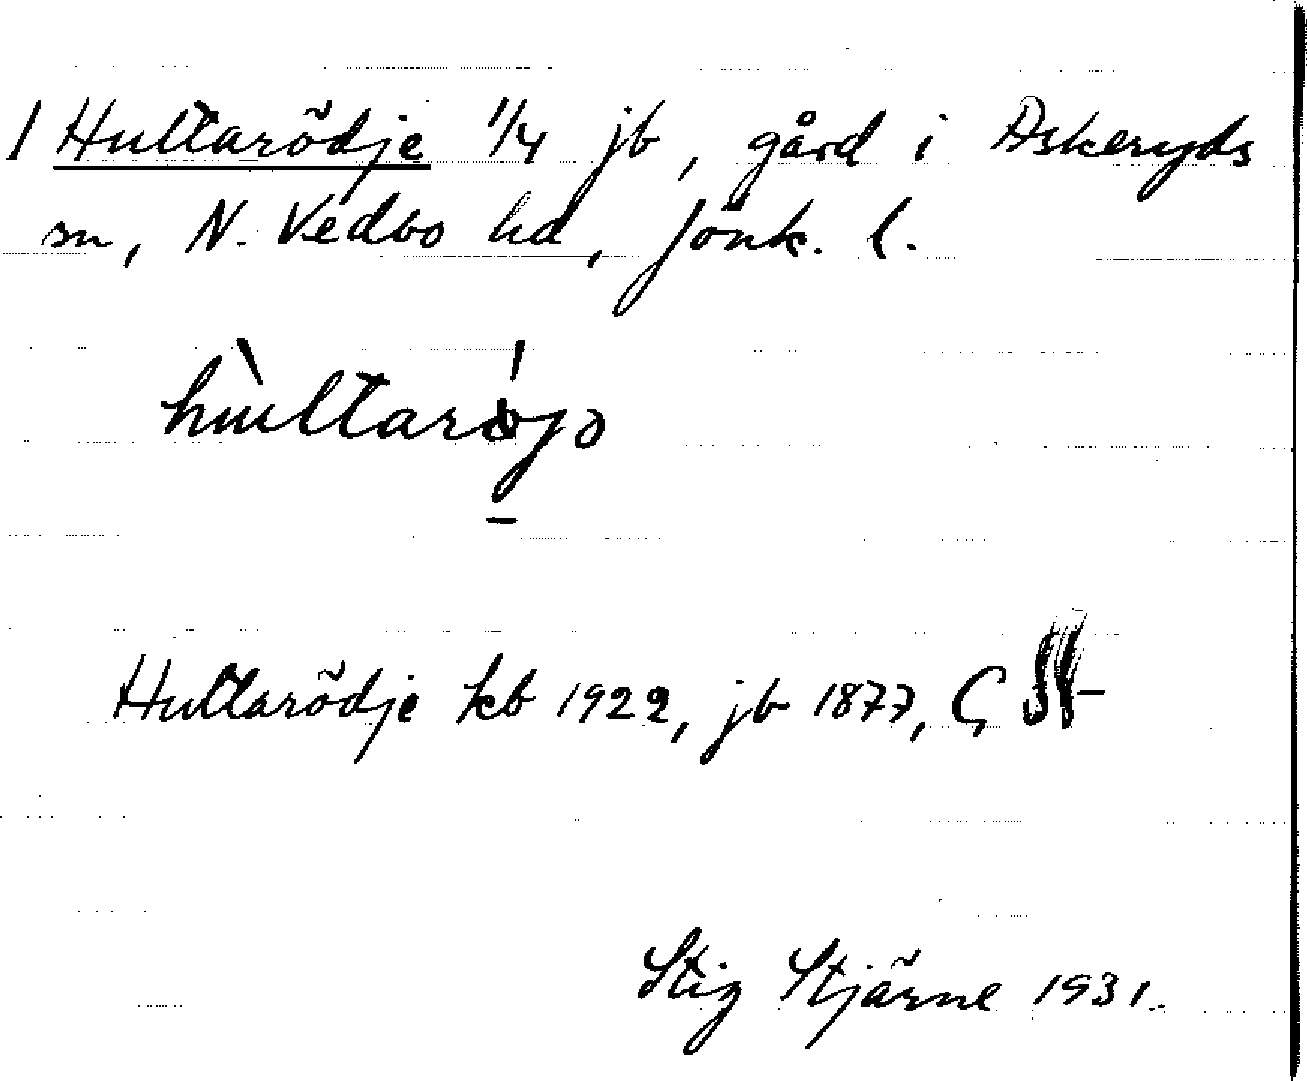 1 Hultarödje 1/4 jb, gård i Askeryds
sn, N. Vedbo hd, Jönk. l.
hùltarǿjə
Hultarödje kb 1922, jb 1877, G
Stig Stjärne 1931.